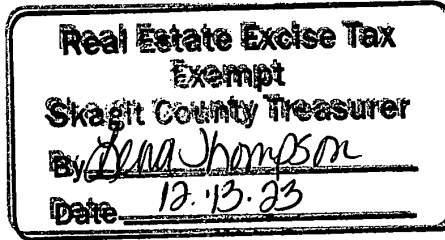 Real Estate Excise Tax
Exempt
Skagit County Treasurer
By Lena Thompson
Date 12.13.23